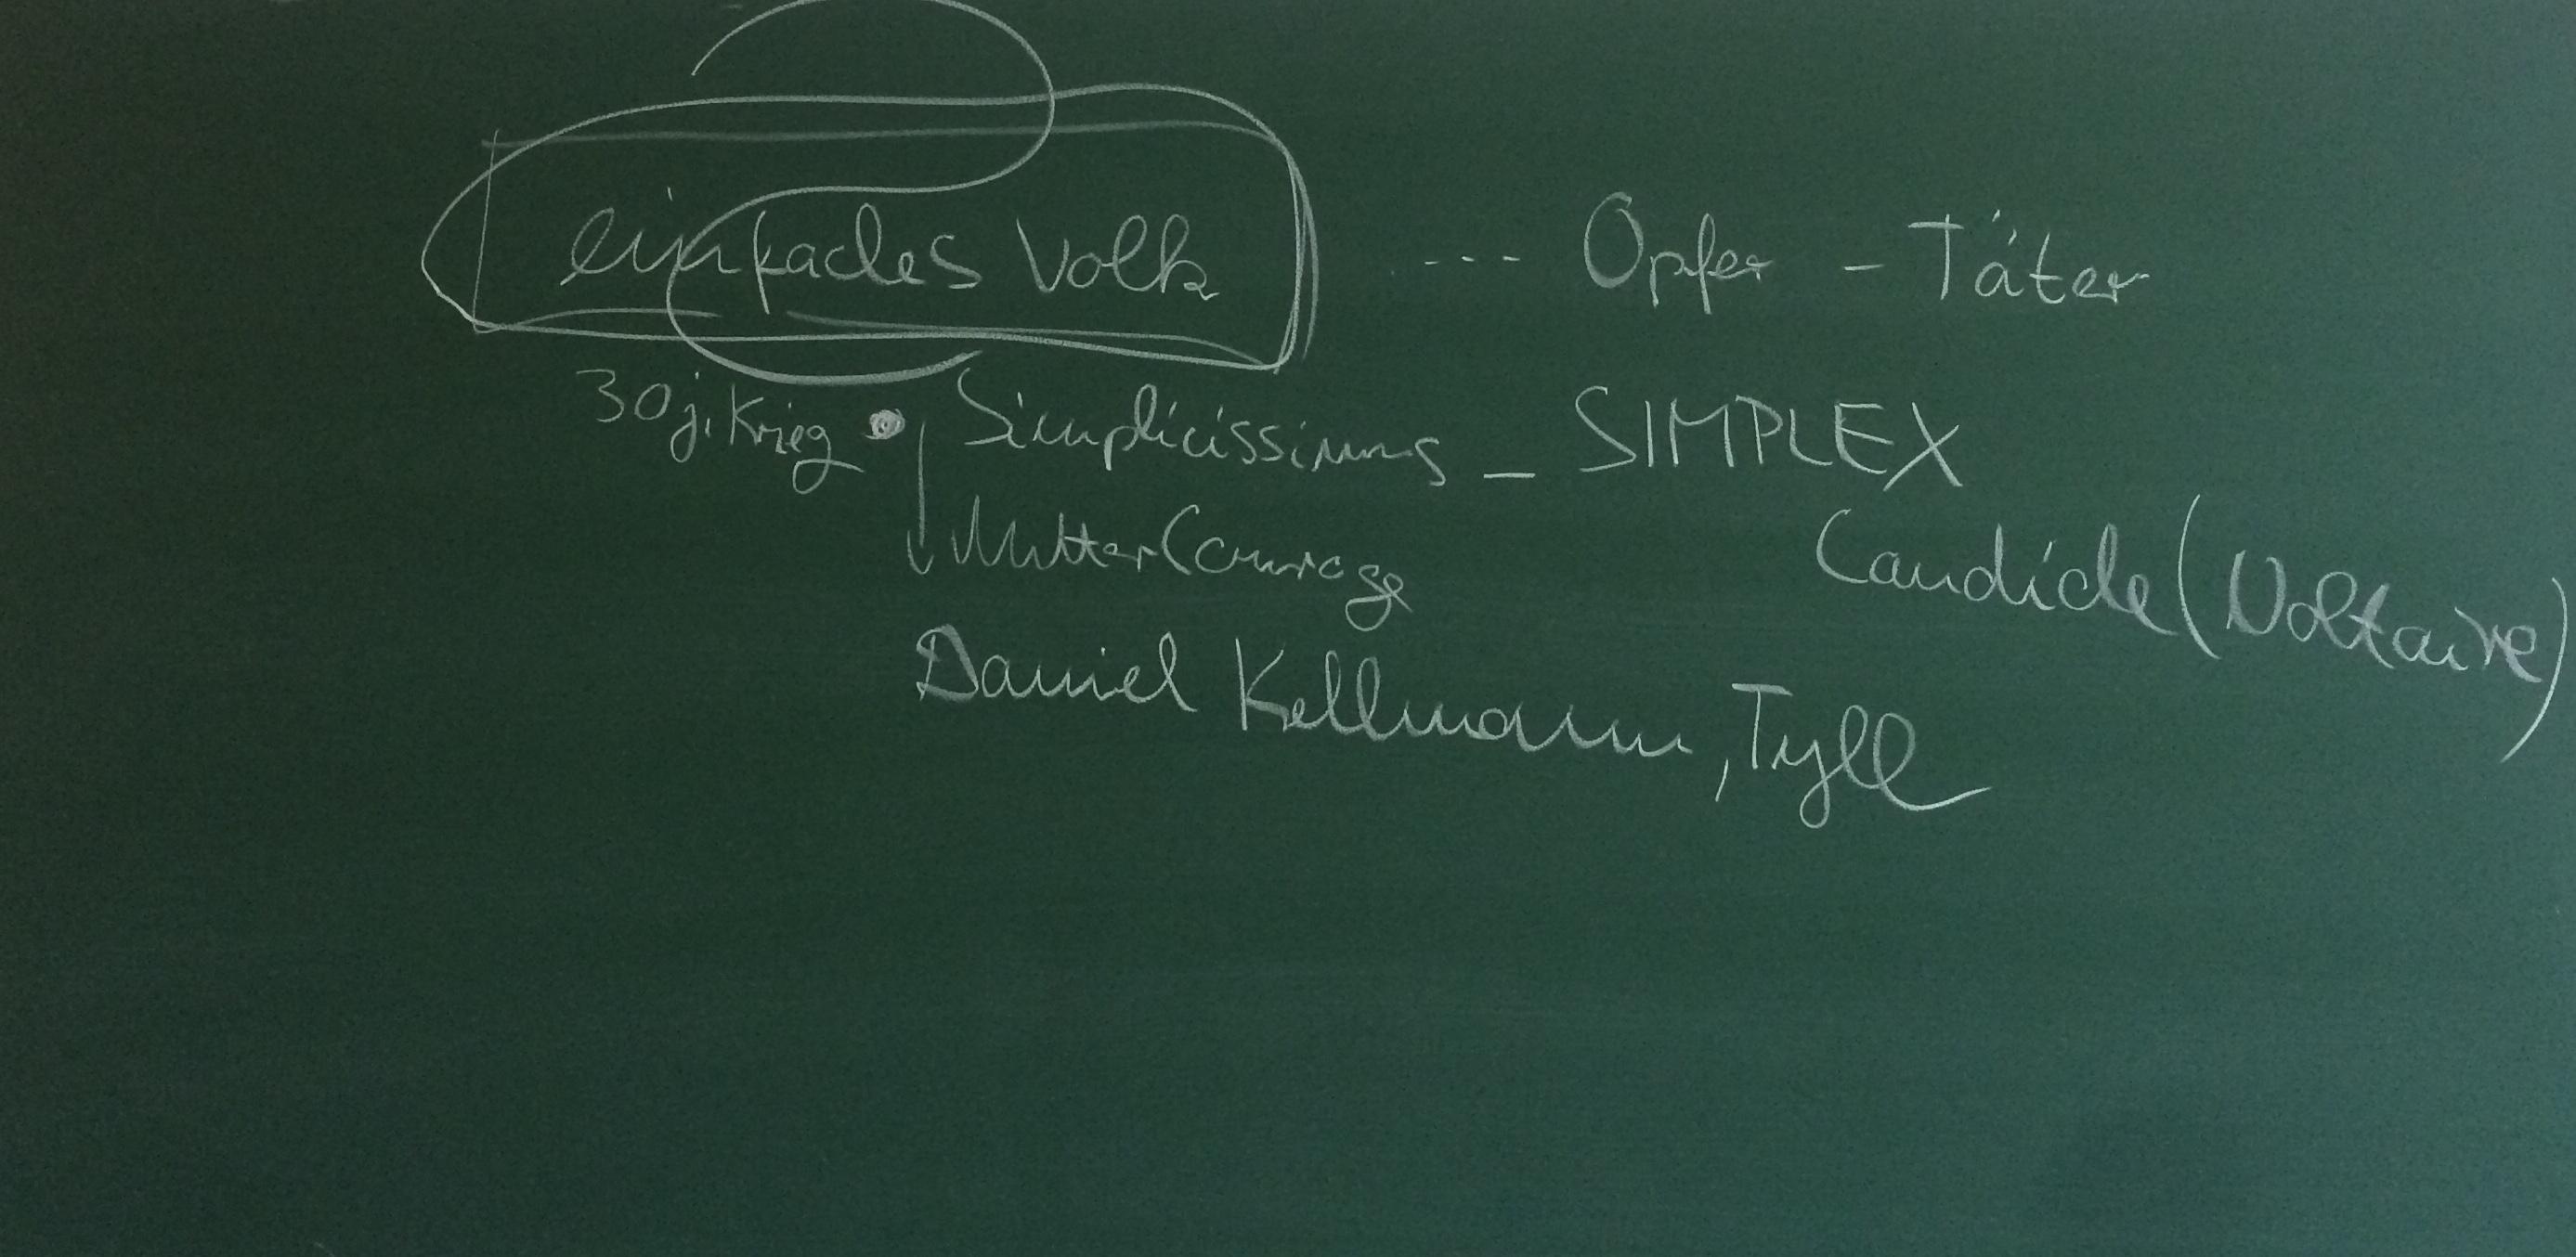 einfaches Volk --- Opfer - Täter
30j. Krieg • Simplicissimus - SIMPLEX
Mutter Courage
Candide (Voltaire)
Daniel Kellmann, Tyll